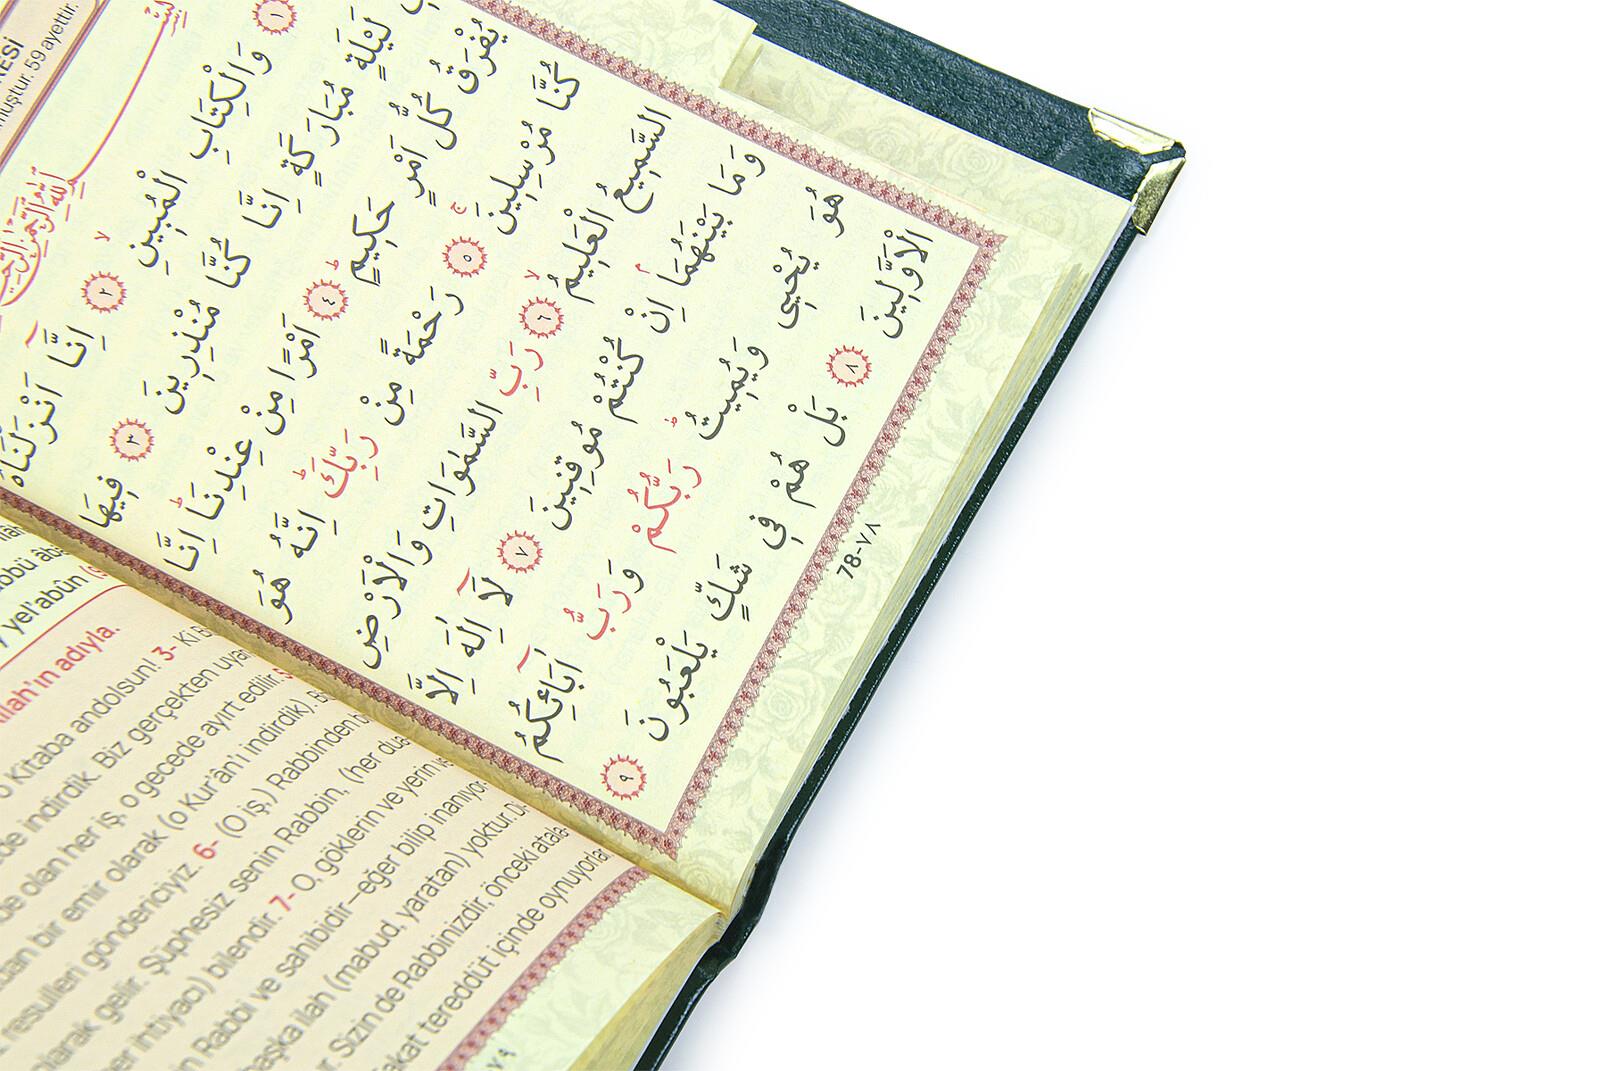 59 ayettir.
بِسْمِ اللّٰهِ الرَّحْمٰنِ الرَّح۪يمِ
١ وَالْكِتَابِ الْمُب۪ينِۙ ٢ اِنَّٓا اَنْزَلْنَاهُ
لَيْلَةٍ مُبَارَكَةٍ اِنَّا كُنَّا مُنْذِر۪ينَ ٣ ف۪يهَا
يُفْرَقُ كُلُّ اَمْرٍ حَك۪يمٍۜ ٤ اَمْرًا مِنْ عِنْدِنَاۜ اِنَّا
كُنَّا مُرْسِل۪ينَۚ ٥ رَحْمَةً مِنْ رَبِّكَۜ اِنَّهُ هُوَ
السَّم۪يعُ الْعَل۪يمُۙ ٦ رَبِّ السَّمٰوَاتِ وَالْاَرْضِ
وَمَا بَيْنَهُمَاۢ اِنْ كُنْتُمْ مُوقِن۪ينَ ٧ لَٓا اِلٰهَ اِلَّا
هُوَ يُحْي۪ي وَيُم۪يتُۜ رَبُّكُمْ وَرَبُّ اٰبَٓائِكُمُ
الْاَوَّل۪ينَ ٨ بَلْ هُمْ ف۪ي شَكٍّ يَلْعَبُونَ ٩
78-٧٨
yel'abûn
adıyla.
o Kitaba andolsun! 3-
indirdik. Biz gerçekten
olan her iş, o gecede ayırt edilir.
bir emir olarak (o Kur'ân'ı indirdik).
resulleri göndericiyiz. 6- (O iş,) Rabbinden
gelir. Şüphesiz senin Rabbin, (her
ihtiyacı) bilendir. 7- O, göklerin ve yerin
Rabbi ve sahibidir –eğer bilip
başka ilah (mabud, yaratan) yoktur.
Sizin de Rabbinizdir, önceki
tereddüt içinde oynuyorlar.
٧٩